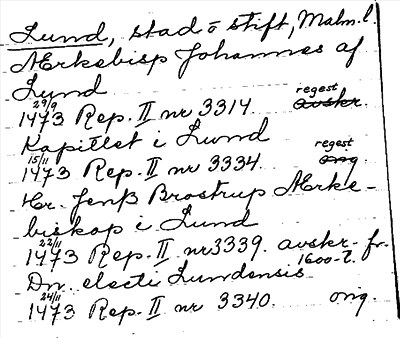 Lund, stad o stift, Malm. l.
Ærkebisp Johannes af
Lund
29/9 regest
1473 Rep. II nr 3314 avskr.
Kapitlet i Lund
15/11 regest
1473 Rep. II nr 3334 orig.
Hr. Jenß Brostrup Ærke-
biskop i Lund
22/11
1473 Rep. II nr 3339. avskr. fr.
1600-t.
Dn. electi Lundensis
24/11
1473 Rep. II nr 3340. orig.